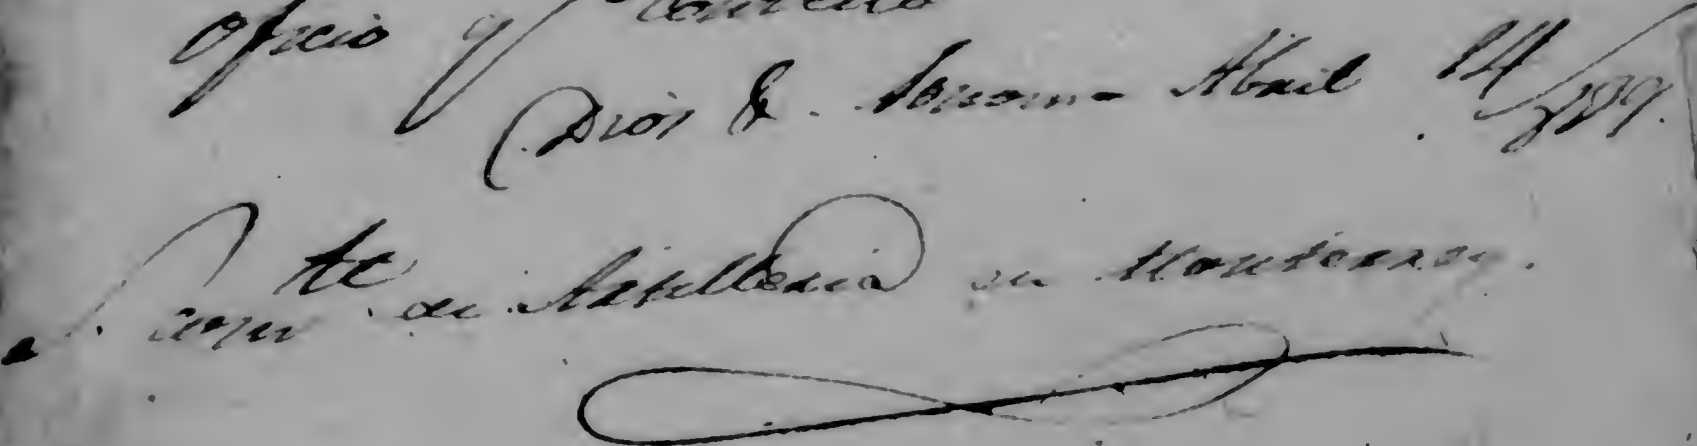 oficio q
Dios &. Sonoma Abril 14/839.
S. Comte de Artilleria en Monterrey.